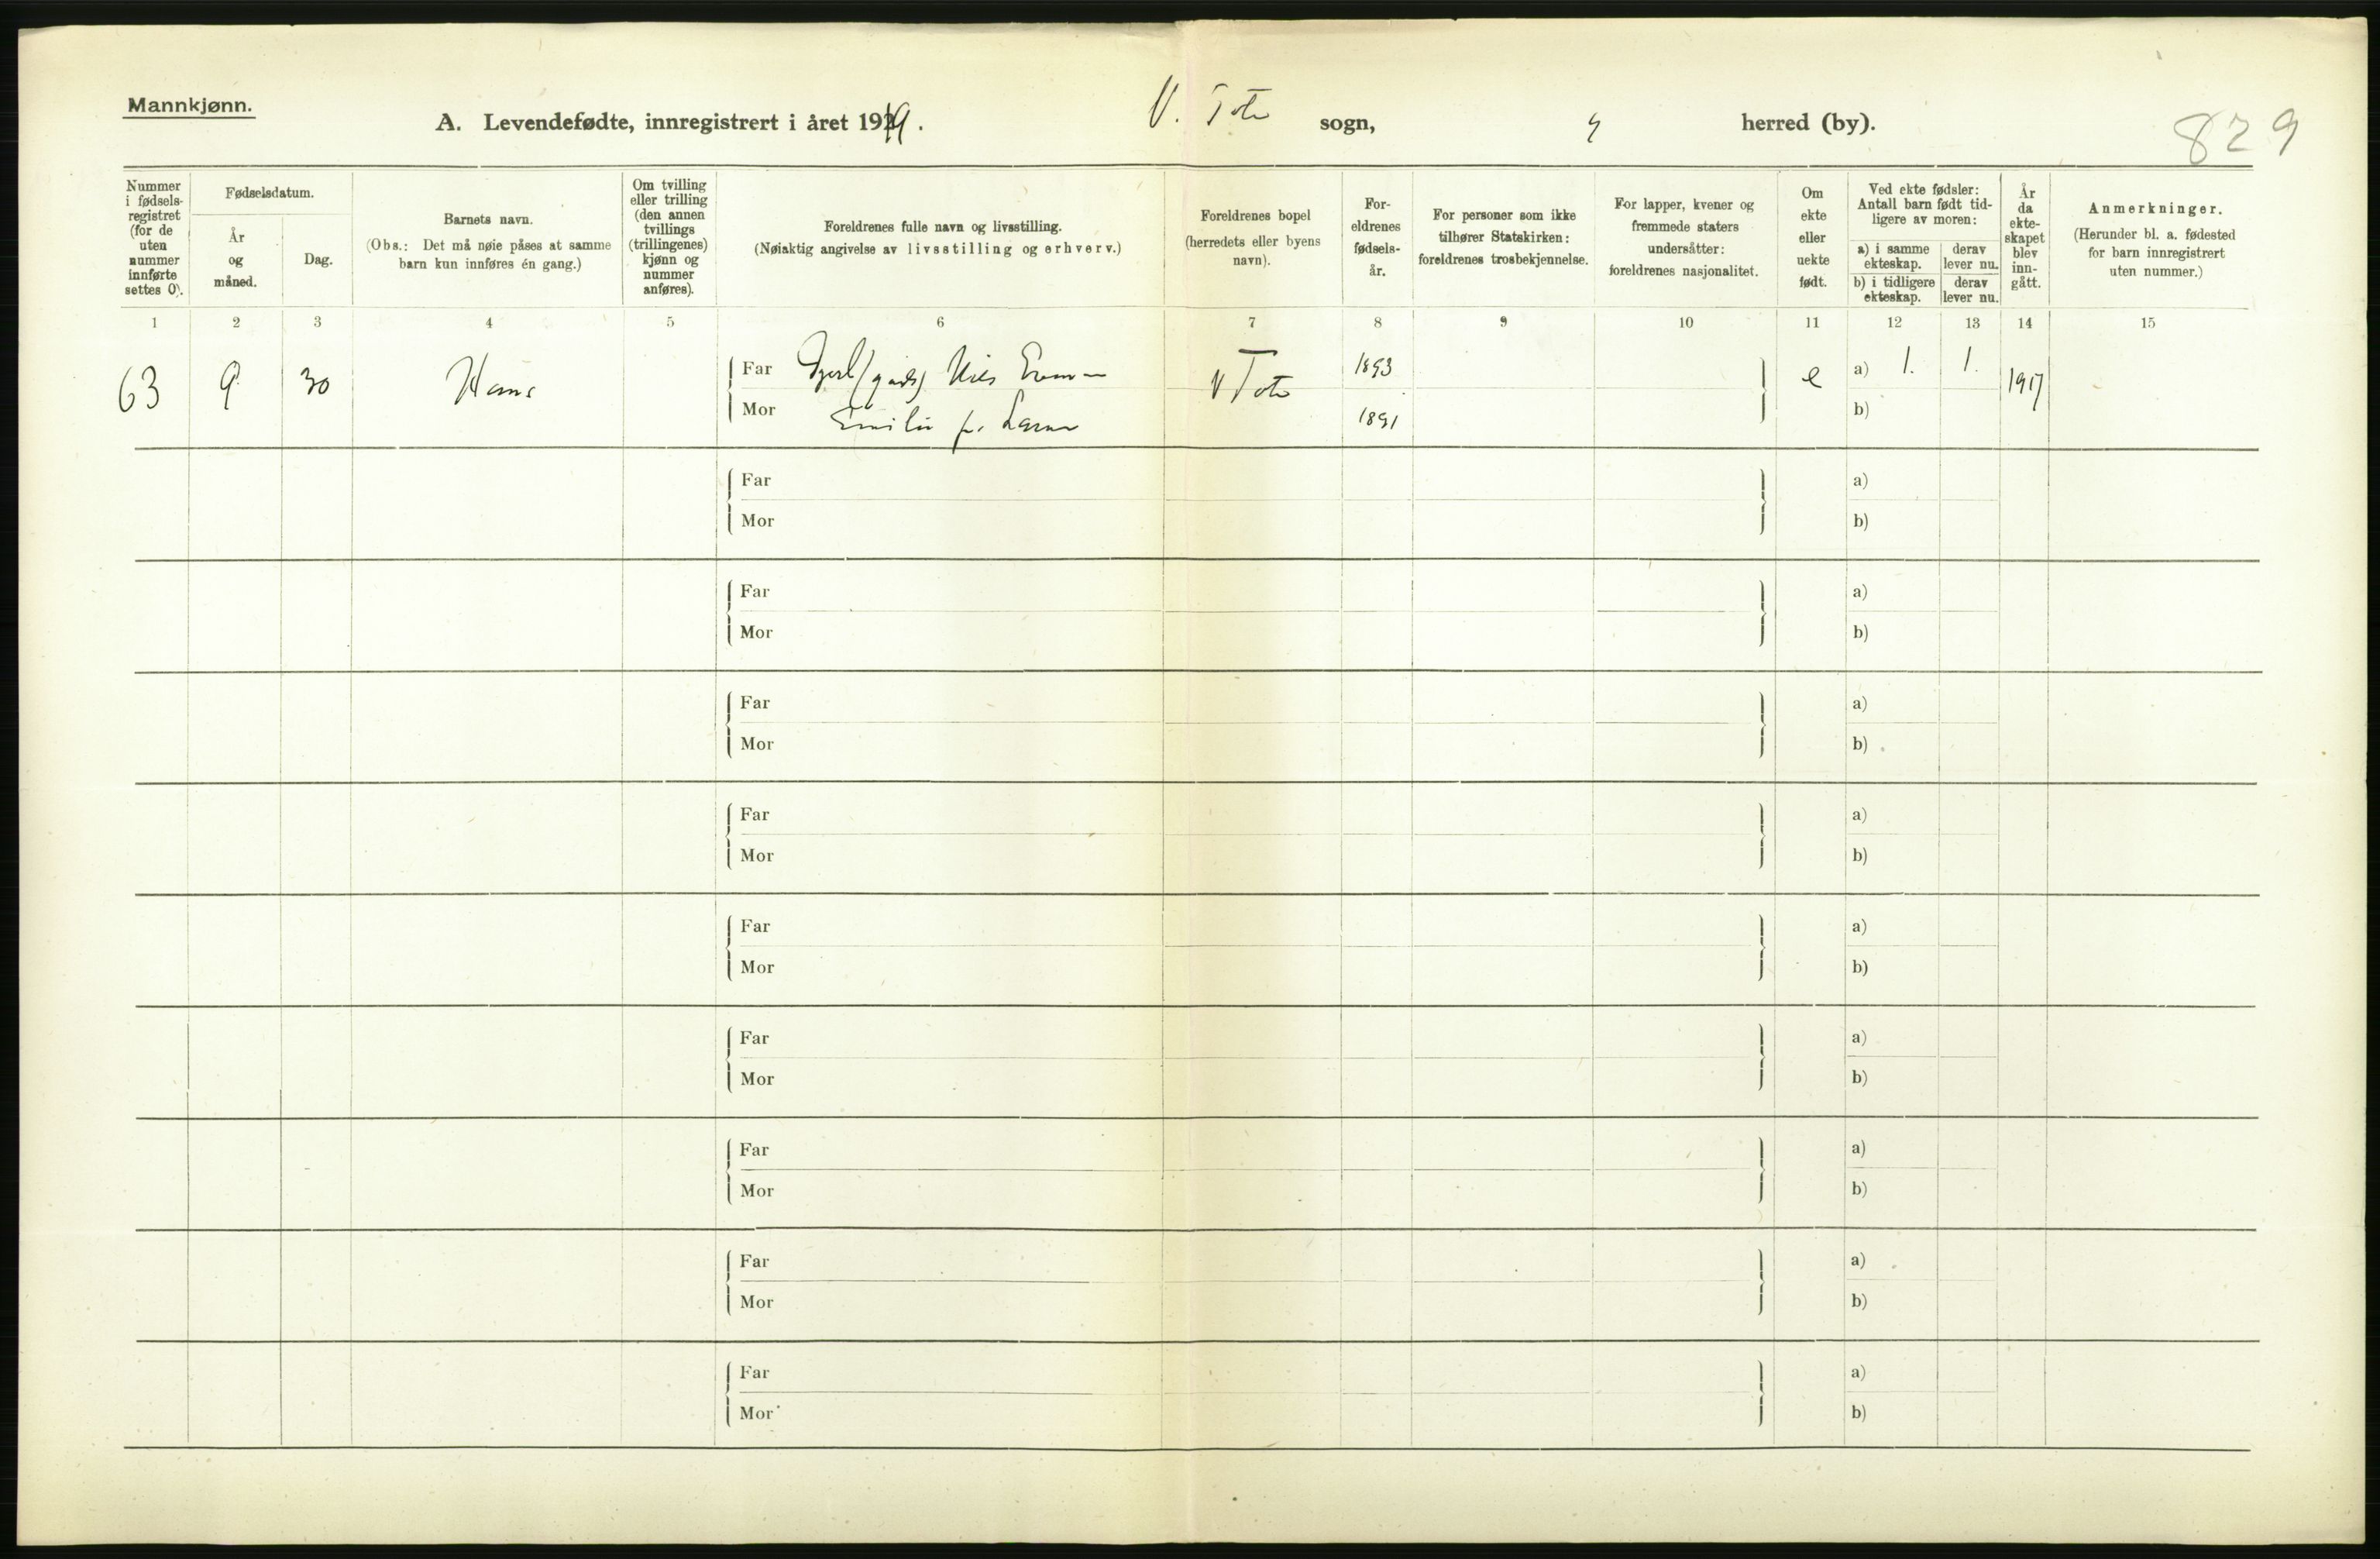 Mannkjønn.
A. Levendefødte, innregistrert i året 1919. V. Toten sogn, herred (by). 829
Nummer i fødsels-registret (for de uten nummer innførte settes 0).
Fødselsdatum.
År og måned.
Dag.
Barnets navn.
(Obs.: Det må nøie påses at samme barn kun innføres én gang.)
Om tvilling eller trilling (den annen tvillings (trillingenes) kjønn og nummer anføres).
Foreldrenes fulle navn og livsstilling.
(Nøiaktig angivelse av livsstilling og erhverv.)
Foreldrenes bopel (herredets eller byens navn).
For-eldrenes fødsels-år.
For personer som ikke tilhører Statskirken: foreldrenes trosbekjennelse.
For lapper, kvener og fremmede staters undersåtter: foreldrenes nasjonalitet.
Om ekte eller uekte født.
Ved ekte fødsler: Antall barn født tid-ligere av moren:
a) i samme ekteskap.
derav lever nu.
b) i tidligere ekteskap.
derav lever nu.
År da ekte-skapet blev inn-gått.
Anmerkninger.
(Herunder bl. a. fødested for barn innregistrert uten nummer.)
1 2 3 4 5 6 7 8 9 10 11 12 13 14 15
63 9 30 Hans Far Nils V Toten 1893 e a) 1. 1. 1917
Mor Emilie f. 1891 b)
Far a)
Mor b)
Far a)
Mor b)
Far a)
Mor b)
Far a)
Mor b)
Far a)
Mor b)
Far a)
Mor b)
Far a)
Mor b)
Far a)
Mor b)
Far a)
Mor b)